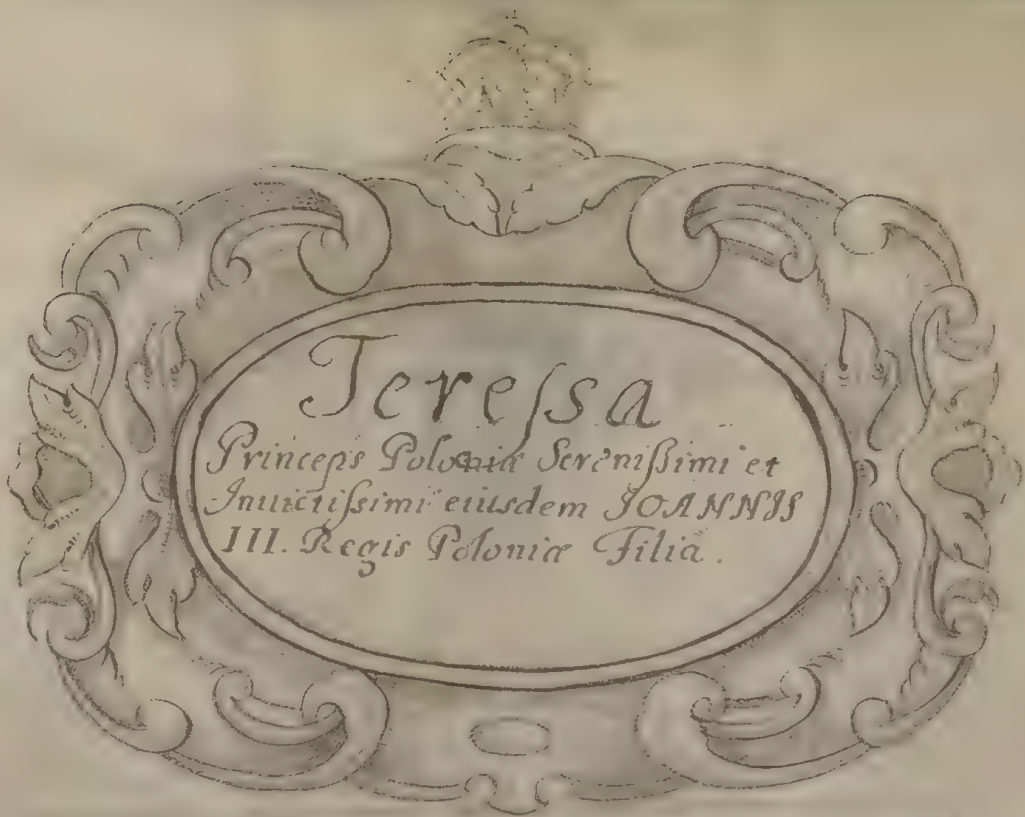 Tereſsa
Princeps Poloniæ Sereniſsimi et
Inuictiſsimi eiusdem IOANNIS
III. Regis Poloniæ Filia.